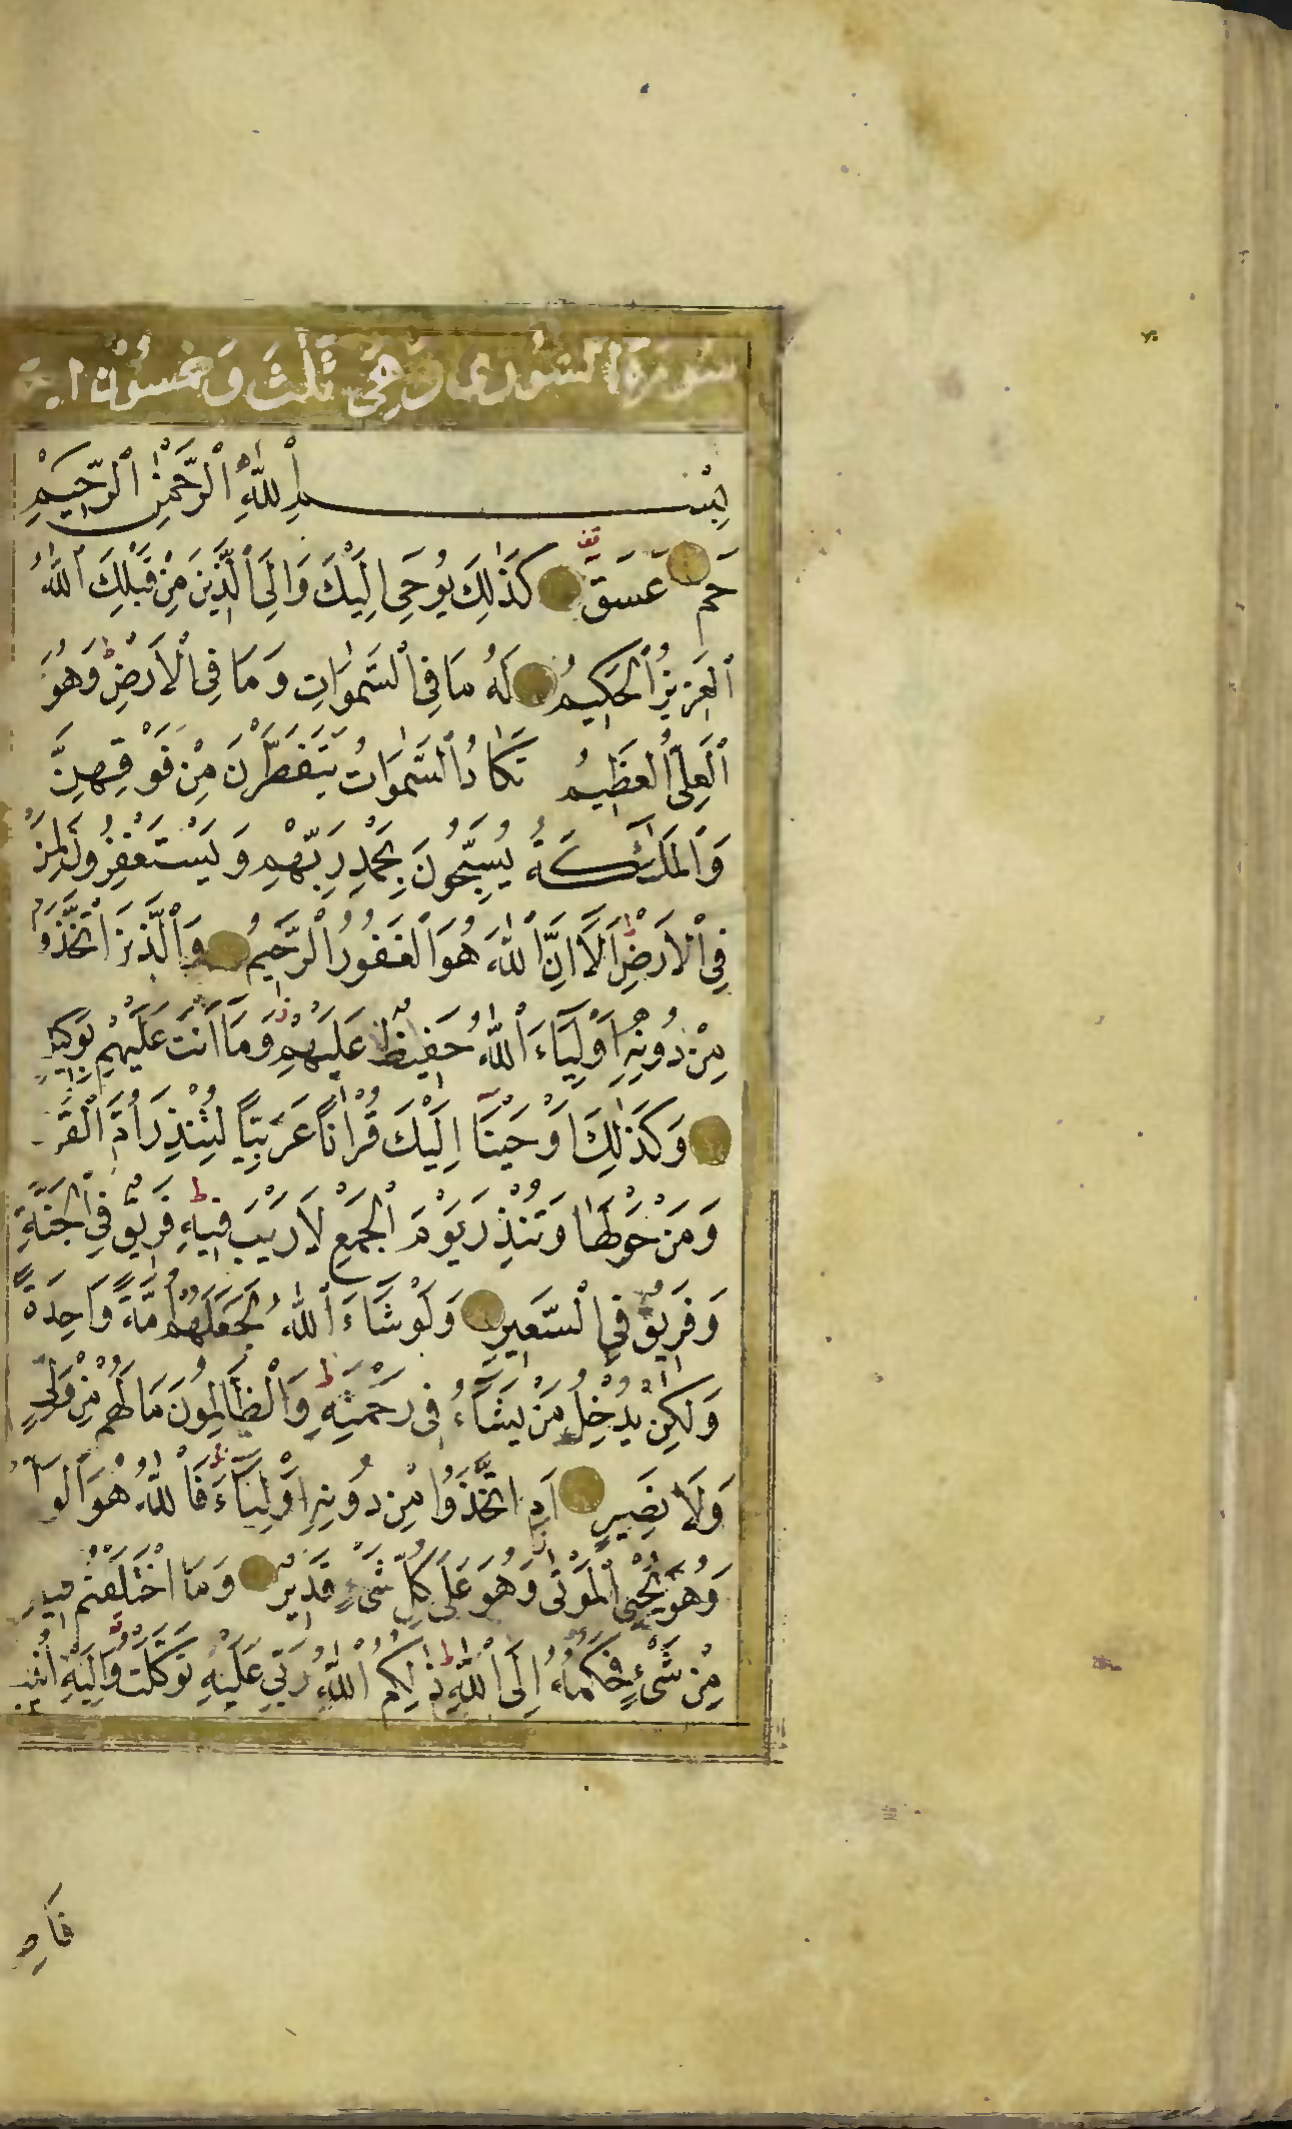 سورة الشورى وهي ثلث وخمسون اية
بِسْمِ اللّٰهِ الرَّحْمٰنِ الرَّحِيمِ
حٓم عٓسٓقٓ كَذٰلِكَ يُوحٓى اِلَيْكَ وَاِلَى الَّذِينَ مِنْ قَبْلِكَ اللّٰهُ
الْعَزِيزُ الْحَكِيمُ لَهُ مَا فِى السَّمٰوَاتِ وَمَا فِى الْاَرْضِ وَهُوَ
الْعَلِىُّ الْعَظِيمُ تَكَادُ السَّمٰوَاتُ يَتَفَطَّرْنَ مِنْ فَوْقِهِنَّ
وَالْمَلٰٓئِكَةُ يُسَبِّحُونَ بِحَمْدِ رَبِّهِمْ وَيَسْتَغْفِرُونَ لِمَنْ
فِى الْاَرْضِ اَلَآ اِنَّ اللّٰهَ هُوَ الْغَفُورُ الرَّحِيمُ وَالَّذِينَ اتَّخَذُوا
مِنْ دُونِهِ اَوْلِيَاءَ اللّٰهُ حَفِيظٌ عَلَيْهِمْ وَمَا اَنْتَ عَلَيْهِمْ بِوَكِيلٍ
وَكَذٰلِكَ اَوْحَيْنَآ اِلَيْكَ قُرْاٰنًا عَرَبِيًّا لِتُنْذِرَ اُمَّ الْقُرَ
وَمَنْ حَوْلَهَا وَتُنْذِرَ يَوْمَ الْجَمْعِ لَا رَيْبَ فِيهِ فَرِيقٌ فِى الْجَنَّةِ
وَفَرِيقٌ فِى السَّعِيرِ وَلَوْ شَآءَ اللّٰهُ لَجَعَلَهُمْ اُمَّةً وَاحِدَةً
وَلٰكِنْ يُدْخِلُ مَنْ يَشَآءُ فِى رَحْمَتِهِ وَالظَّالِمُونَ مَا لَهُمْ مِنْ وَلِىٍّ
وَلَا نَصِيرٍ اَمِ اتَّخَذُوا مِنْ دُونِهِ اَوْلِيَآءَ فَاللّٰهُ هُوَ الْوَ
وَهُوَ يُحْيِى الْمَوْتٰى وَهُوَ عَلٰى كُلِّ شَىْءٍ قَدِيرٌ وَمَا اخْتَلَفْتُمْ فِيهِ
مِنْ شَىْءٍ فَحُكْمُهُ اِلَى اللّٰهِ ذٰلِكُمُ اللّٰهُ رَبِّى عَلَيْهِ تَوَكَّلْتُ وَاِلَيْهِ اُنِيبُ
فَاطِ